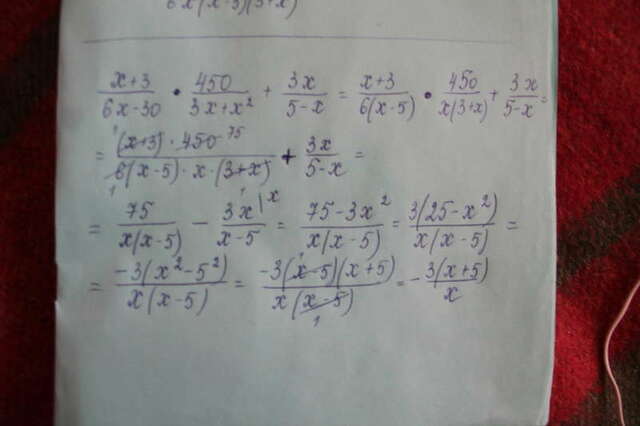 6x(x-5)(3+x)
x+3/6x-30 • 450/3x+x² + 3x/5-x = x+3/6(x-5) • 450/x(3+x) + 3x/5-x =
= (x+3)·450 75/6(x-5)·x·(3+x) + 3x/5-x =
= 75/x(x-5) - 3x|x/x-5 = 75-3x²/x(x-5) = 3(25-x²)/x(x-5) =
= -3(x²-5²)/x(x-5) = -3(x-5)(x+5)/x(x-5) = -3(x+5)/x